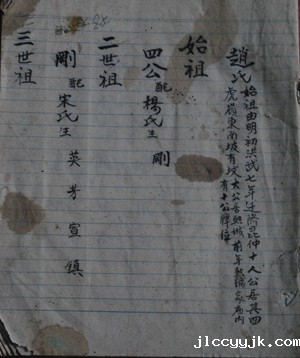 趙氏始祖由明初洪武七年迁济昆仲十人公居其四
虎嶺東南坡有坟大公居
前年
有十公牌位
始祖
四公配楊氏生 剛
二世祖
剛配宋氏生 英 芳 宣 鎮
三世祖
配
jlccyyjk.com